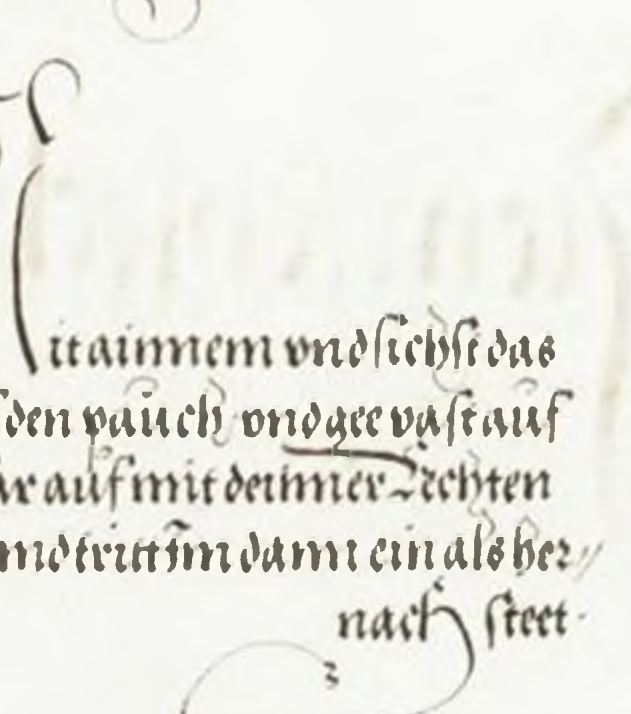 it ainnem vnd sichst das
den paŭch vnd gee vast auf
ar auf mit deinner Rechten
vnd tritt im dann ein als her //
nach steet ·
3